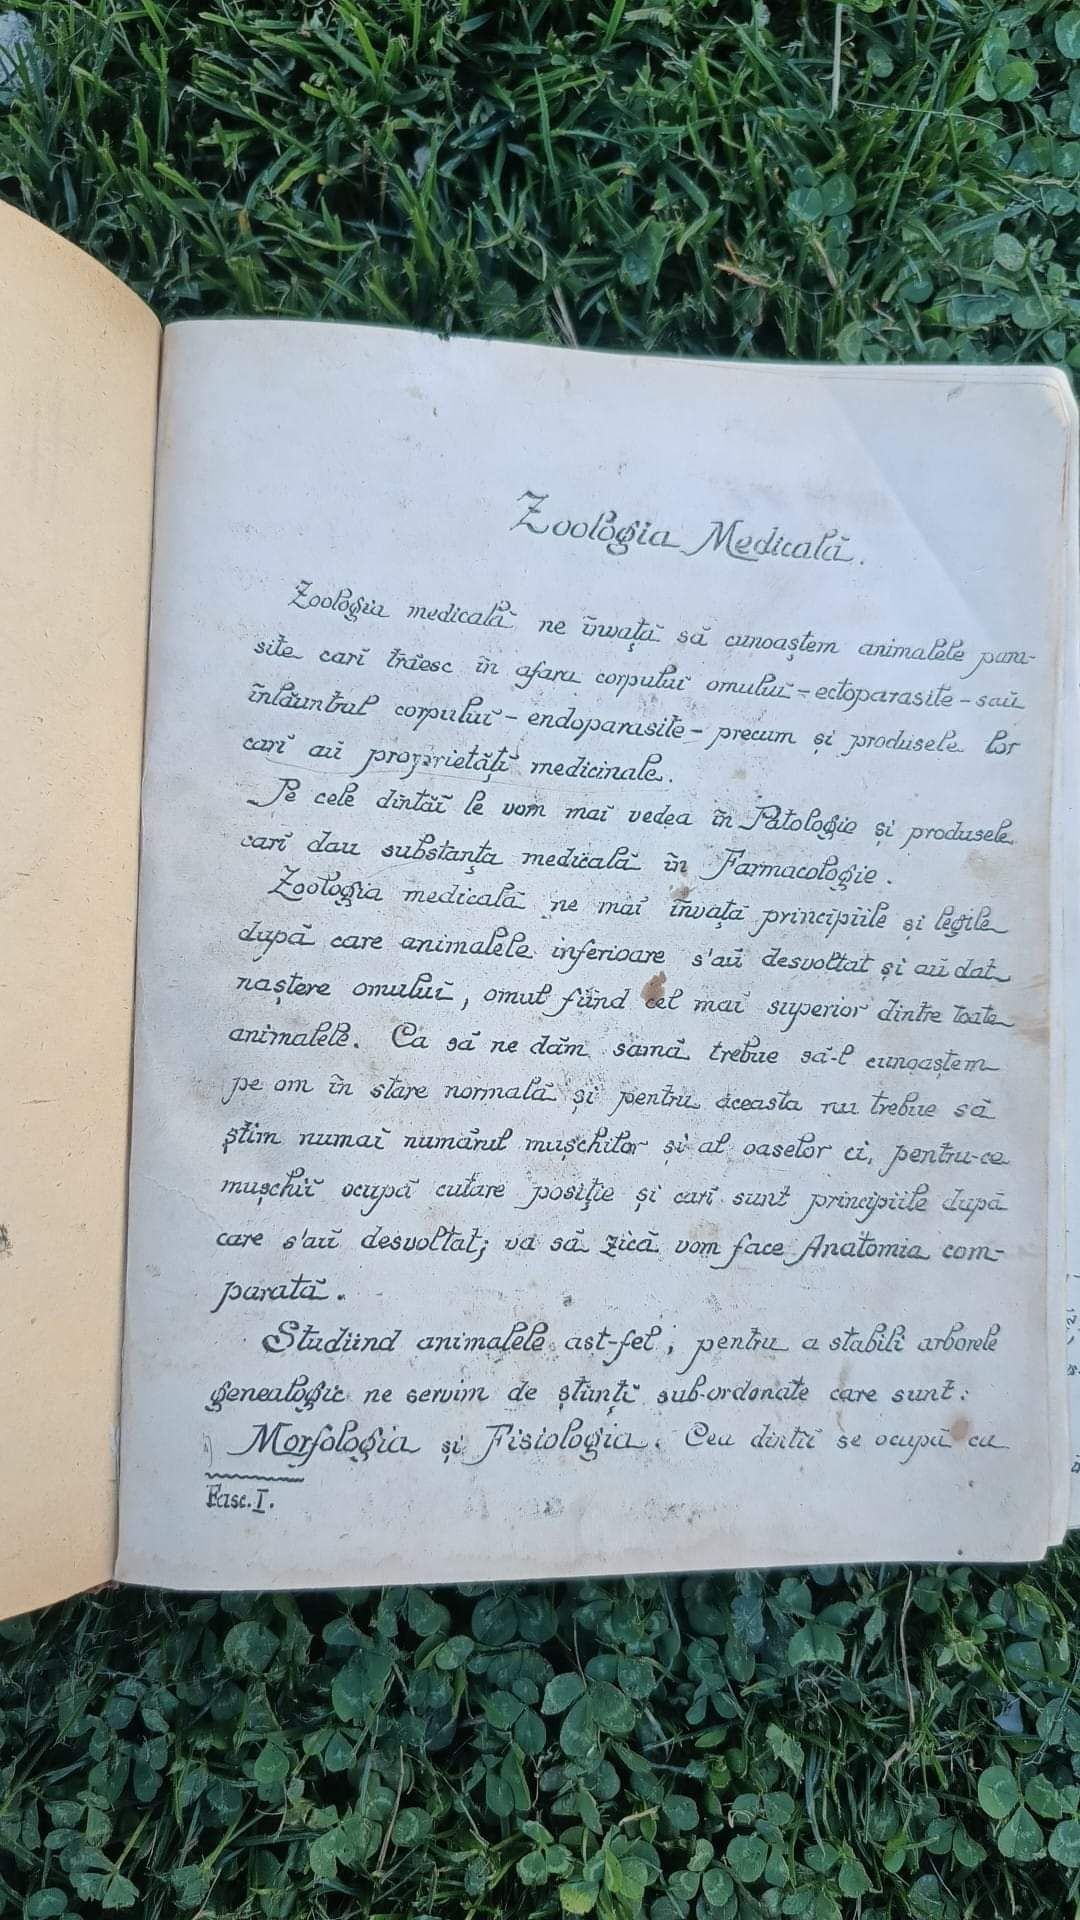 Zoologia Medicală.
Zoologia medicală ne învață să cunoaștem animalele para-
site carĭ trăesc în afara corpuluĭ omuluĭ – ectoparasite – saŭ
înlăuntrul corpuluĭ – endoparasite – precum și produsele lor
carĭ aŭ proprietățĭ medicinale.
Pe cele dintăĭ le vom mai vedea în Patologie și produsele
carĭ dau substanța medicală în Farmacologie.
Zoologia medicală ne maĭ învață principiile și legile
după care animalele inferioare s'aŭ desvoltat și aŭ dat
naștere omuluĭ, omul fiind cel maĭ superior dintre toate
animalele. Ca să ne dăm samă trebue să-l cunoaștem
pe om în stare normală și pentru aceasta nu trebue să
știm numaĭ numărul mușchilor și al oaselor ci, pentru-ce
mușchiĭ ocupă cutare poziție și carĭ sunt principiile după
care s'aŭ desvoltat; va să zică vom face Anatomia com-
parată.
Studiind animalele ast-fel, pentru a stabili arborele
genealogic ne servim de științĭ sub-ordonate care sunt:
Morfologia și Fisiologia. Cea dintĭĭ se ocupă cu
Fasc. I.